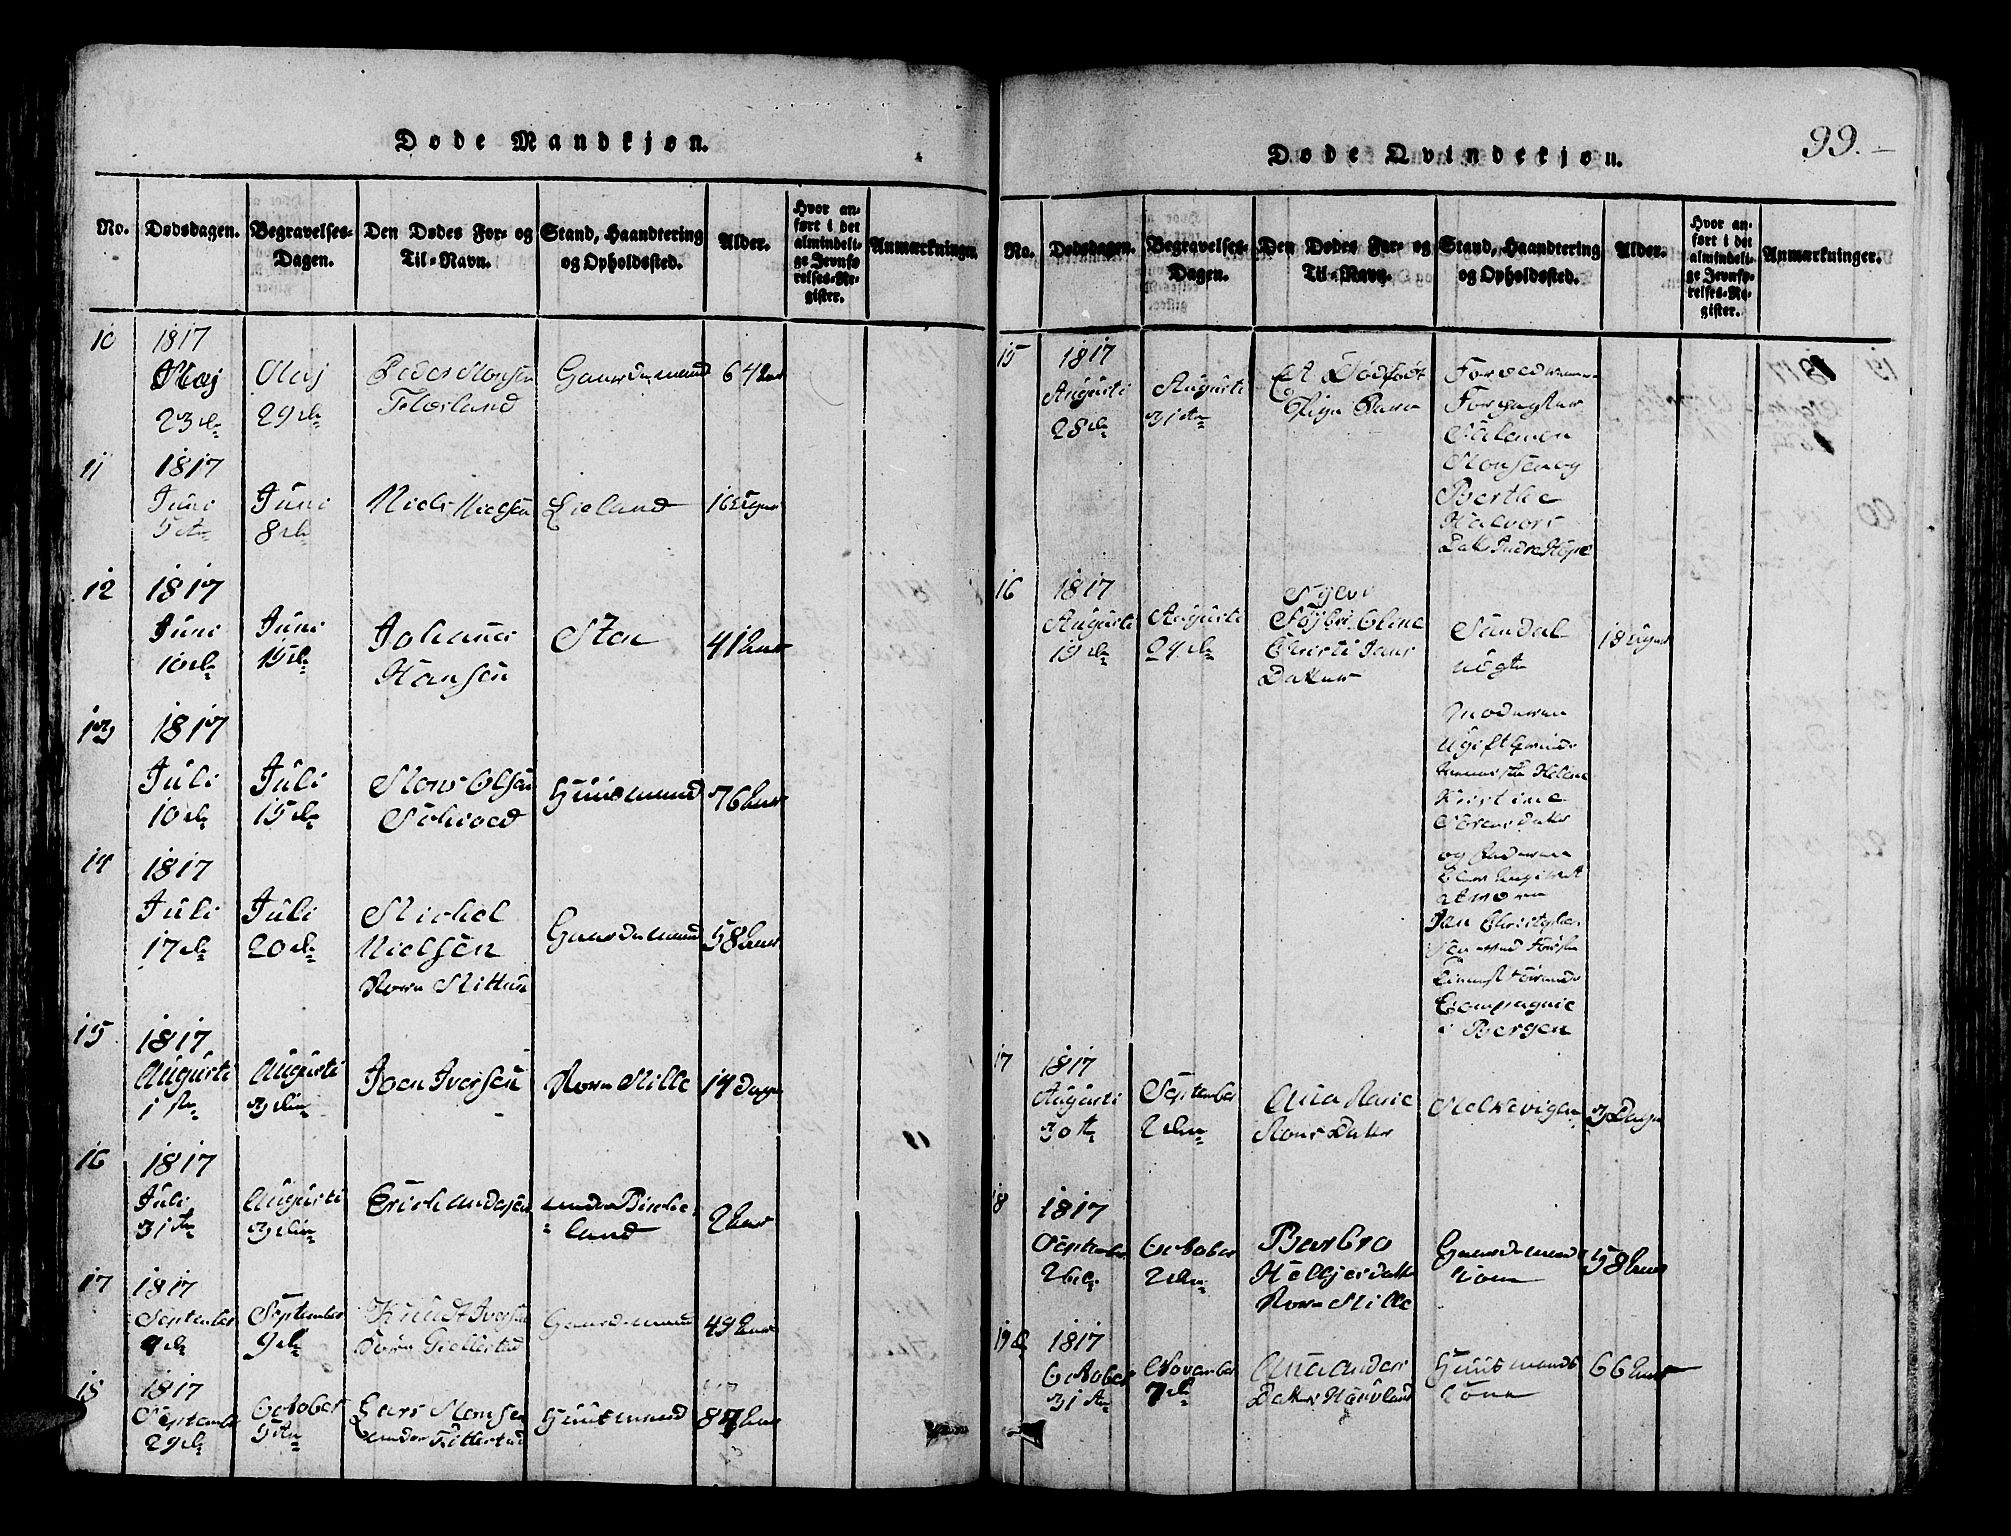 Døde Mandkjøn.
No. Dødsdagen. Begravelses-Dagen. Den Dødes For- og Til-Navn. Stand, Haandtering og Opholdssted. Alder. Hvor anført i det almindelige Jevnførelses-Register. Anmærkninger.
10
1817
Maj
23de
Maj
29de
Peder Monsen
Flæsland
Gaardemand
64 Aar
11
1817
Juni
5te
Juni
8de
Niels Nielsen
Lieland
16 Uger
12
1817
Juni
10de
Juni
15de
Johannes
Hansen
Sten
41 Aar
13
1817
Juli
10de
Juli
15de
Mons Olsen
Huusmand
76 Aar
14
1817
Juli
17de
Juli
20de
Michel
Nielsen
Gaardemand
58 Aar
15
1817
Augusti
1ste
Augusti
3die
Joen Iversen
Horne Mille
14 Dage
16
1817
Juli
31te
Augusti
3die
Erich Andersen
under Birche-
land
2 Aar
17
1817
September
4de
September
9de
Knud Iversen
Gaardemand
49 Aar
18
1817
September
29de
October
5te
Lars Monsen
under
Huusmand
87 Aar
Døde Qvindekjøn.
99.
No. Dødsdagen. Begravelses-Dagen. Den Dødes For- og Til-Navn. Stand, Haandtering og Opholdssted. Alder. Hvor anført i det almindelige Jevnførelses-Register. Anmærkninger.
15
1817
Augusti
28de
Augusti
31te
Et Dødfødt
Pige Barn
Forældrene
Forpagter
Salamon
Monsen og
Berthe
Halvors
Datter Indre Håpe
16
1817
Augusti
19de
Augusti
24de
Olene
Christi Jans
Datter
Sandal
18 Uger
Moderen
Ugift
Helene
Kristine
Sørens Datter
og Faderen
Jan Christopher
sen ved
Compagnie
i Bergen
17
1817
Augusti
30te
September
2den
Anna Marie
Mons Datter
Melkevigen
3 Dage
18
1817
September
26de
October
2den
Barbro
Helljes Datter
Horne Mille
Gaardemand
Kone
58 Aar
19
1817
October
31te
November
7de
Anna Anders
Datter Havland
Huusmands
Kone
66 Aar